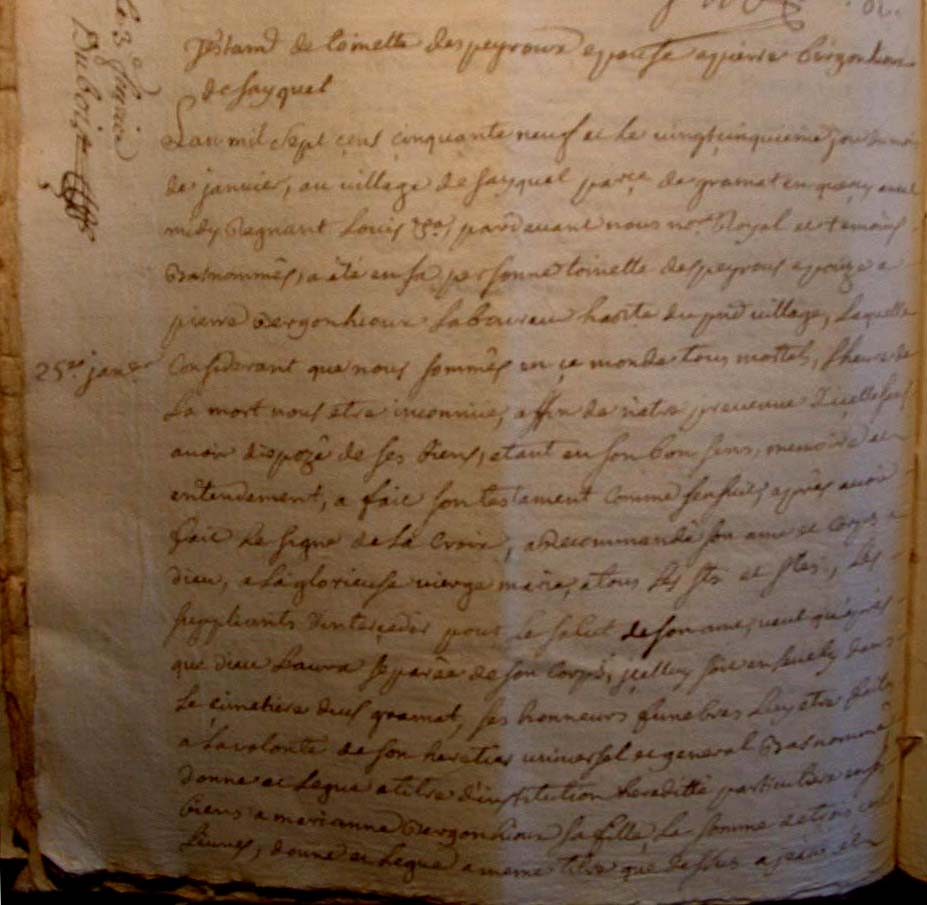 Testamt de toinette despeyroux epouse a pierre Bergonhioux
de fayquel
L'an mil sept cens cinquante neuf et le vingt cinquieme jour du mois
de janvier, au village de fayquel parce de gramat en quercy avant
midy Regnant Louis &a, pardevant nous nore Royal et temoins
Basnommés, a été en sa personne toinette despeyroux epouze a
pierre Bergonhioux Laboureur habitt du prdt village, Laquelle
25e janer
Considerant que nous sommes en ce monde tous mortels, l'heure de
La mort nous etre inconnüe, affin de n'etre prevenue d'icelle sans
avoir dispozé de ses Biens, etant en son bon sens, memoire et
entendement, a fait son testament comme sensuit, après avoir
fait Le signe de La Croix, a Recommandé son ame et corps a
dieu, a La glorieuse vierge marie, a tous Les sts et stes, Les
suppliants d'interceder pour Le salut de son ame, veut qu'après
que dieu L'aura separée de son corps, icelluy soit ensevely dans
Le cimetiere dud gramat, ses honneurs funebres Luy etre faits
a La volonté de son heretier universel et general Basnommé
donne et Legue a titre d'institution hereditte particuliere en ses
biens a marianne Bergonhioux sa fille La somme de trois cens
Livres, donne et Legue a meme titre que dessus a jean
Le 3e
Dubois